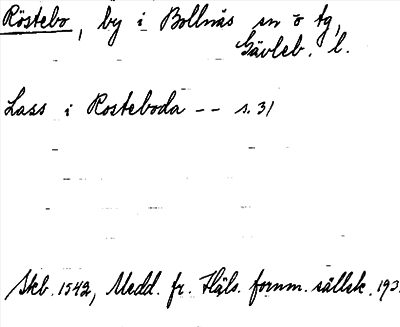 Röstebo, by i Bollnäs sn o tg,
Gävleb. l.
Lass i Rosteboda -- s. 31
Skb. 1542, Medd. fr. Häls. fornm. sällsk. 193